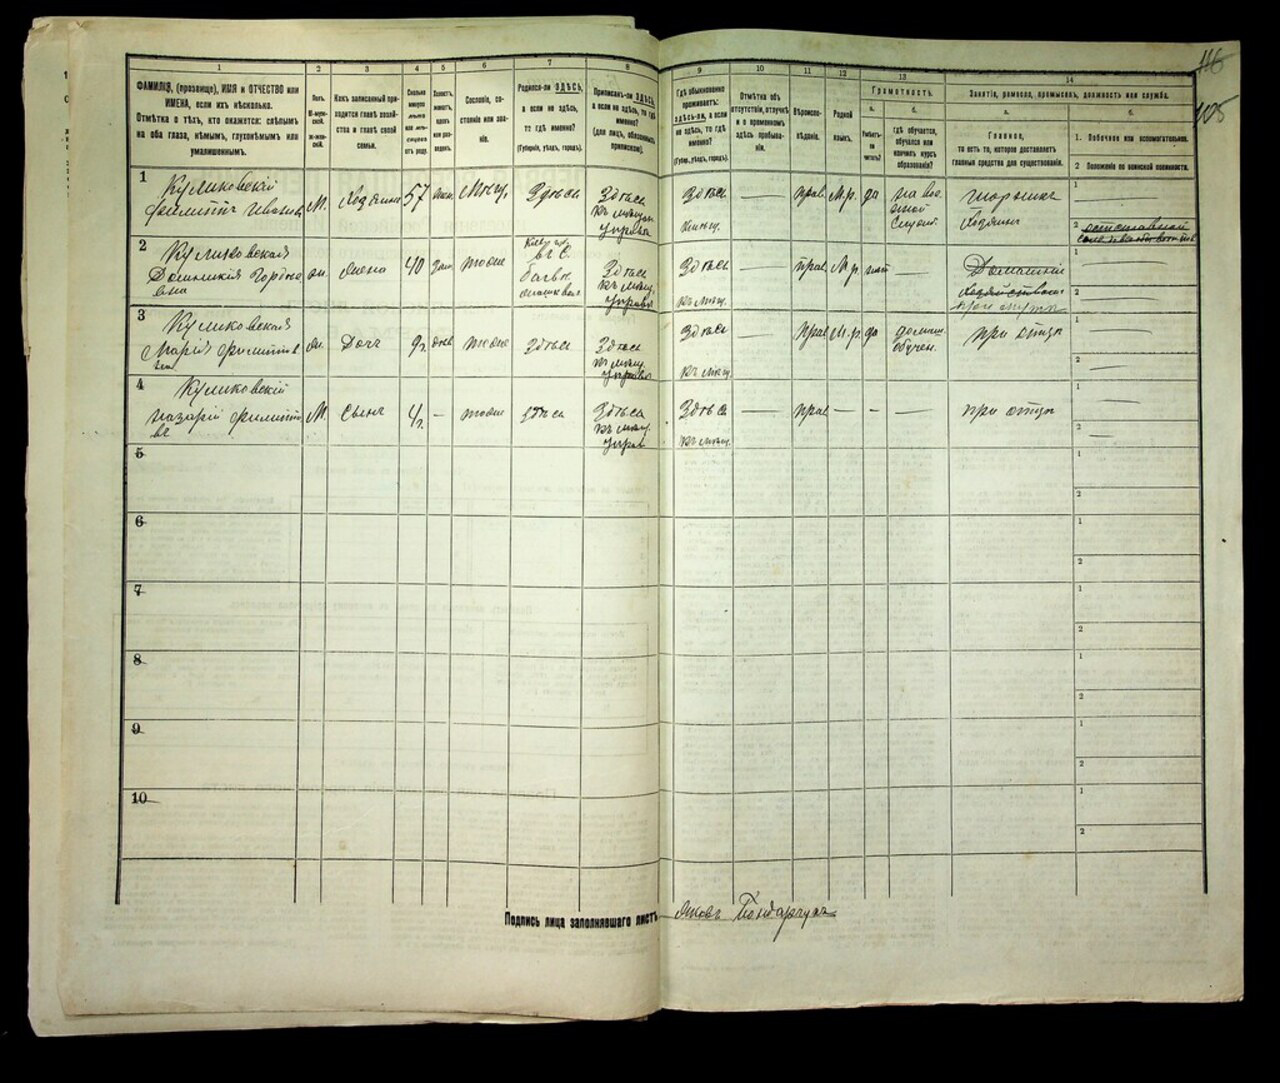 116
105
1
2
3
4
5
6
7
8
9
10
11
12
13
14
ФАМИЛІЯ, (прозвище), ИМЯ и ОТЧЕСТВО или
ИМЕНА, если ихъ нѣсколько.
Отмѣтка о тѣхъ, кто окажется: слѣпымъ
на оба глаза, нѣмымъ, глухонѣмымъ или
умалишеннымъ.
Полъ.
М-муж-
ской.
Ж-жен-
скій.
Какъ записанный при-
ходится главѣ хозяй-
ства и главѣ своей
семьи.
Сколько
минуло
лѣтъ
или мѣ-
сяцевъ
отъ роду.
Холостъ,
женатъ,
вдовъ
или раз-
веденъ.
Сословіе, со-
стояніе или зва-
ніе.
Родился-ли ЗДѢСЬ,
а если не здѣсь,
то гдѣ именно?
(Губернія, уѣздъ, городъ).
Приписанъ-ли ЗДѢСЬ,
а если не здѣсь, то гдѣ
именно?
(для лицъ, обязанныхъ
припискою).
Гдѣ обыкновенно
проживаетъ:
здѣсь-ли, а если
не здѣсь, то гдѣ
именно?
(Губер., уѣздъ, городъ).
Отмѣтка объ
отсутствіи, отлучкѣ
и о временномъ
здѣсь пребыва-
ніи.
Вѣроиспо-
вѣданіе.
Родной
языкъ.
Грамотность.
а.
б.
Умѣетъ-
ли
читать?
гдѣ обучается,
обучался или
кончилъ курсъ
образованія?
Занятіе, ремесло, промыселъ, должность или служба.
а.
б.
Главное,
то есть то, которое доставляетъ
главныя средства для существованія.
1. Побочное или вспомогательное.
2 Положеніе по воинской повинности.
1
Куликовскій
Филиппъ Ивановъ
М.
Хозяинъ
57
Мѣщ.
Здѣсь
Здѣсь
къ мѣщ.
управѣ
Здѣсь
—
прав.
М.р.
да
на во
енной
служб.
хозяинъ
1
2
2
Куликовская
Гордѣе
вна
жена
40
тоже
Здѣсь
къ мѣщ.
управѣ
Здѣсь
къ мѣщ.
—
прав
М.р.
нѣтъ
—
Домашнее
при мужѣ
1
2
3
Куликовская
Марія Филиппов
на
Дочь
9 г.
тоже
Здѣсь
Здѣсь
къ мѣщ.
управѣ
Здѣсь
къ мѣщ.
—
прав
М.р.
да
домаш.
обучен.
при отцѣ
1
2
4
Куликовскій
Назарій Филиппо
въ
М
Сынъ
4 г.
—
тоже
здѣсь
Здѣсь
къ мѣщ.
управ
Здѣсь
къ мѣщ.
—
прав
—
—
—
при отцѣ
1
2
5
1
2
6
1
2
7
1
2
8
1
2
9
1
2
10
1
2
Подпись лица заполнявшаго листъ Яковъ Бондарчукъ